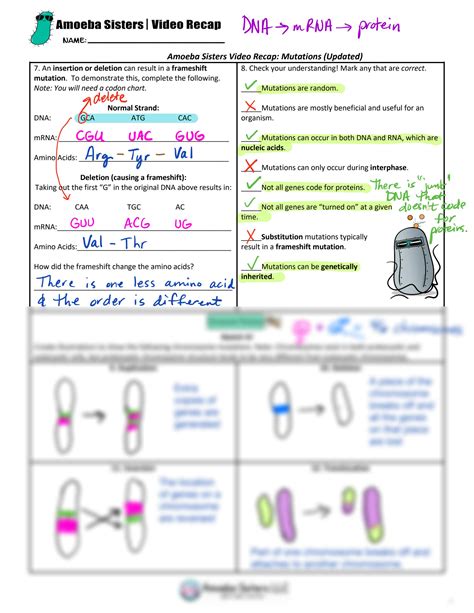 Amoeba Sisters | Video Recap
DNA → mRNA → protein
NAME:
Amoeba Sisters Video Recap: Mutations (Updated)
7. An insertion or deletion can result in a frameshift
mutation. To demonstrate this, complete the following.
Note: You will need a codon chart.
delete
Normal Strand:
DNA: GCA ATG CAC
mRNA: CGU UAC GUG
Amino Acids: Arg - Tyr - Val
Deletion (causing a frameshift):
Taking out the first "G" in the original DNA above results in:
DNA: CAA TGC AC
mRNA: GUU ACG UG
Amino Acids: Val - Thr
How did the frameshift change the amino acids?
There is one less amino acid
& the order is different
8. Check your understanding! Mark any that are correct.
✓ Mutations are random.
X Mutations are mostly beneficial and useful for an
organism.
✓ Mutations can occur in both DNA and RNA, which are
nucleic acids.
X Mutations can only occur during interphase.
✓ Not all genes code for proteins.
There is "junk"
DNA that
doesn't code
for
proteins.
✓ Not all genes are "turned on" at a given
time.
X Substitution mutations typically
result in a frameshift mutation.
✓ Mutations can be genetically
inherited.
9. Duplication
Extra
copies of
genes are
generated
10. Deletion
A piece of the
chromosome
breaks off and
all the
genes on
that piece
are lost
11. Inversion
The location
of genes on a
chromosome
are reversed
12. Translocation
Part of one chromosome breaks off and
attaches to another chromosome.
Amoeba Sisters LLC